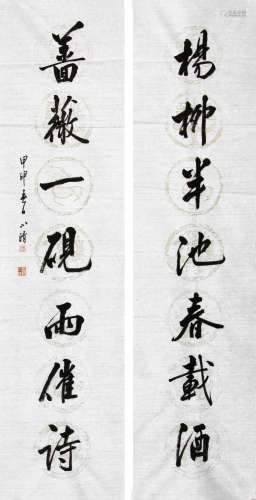 楊柳半池春載酒
薔薇一硯雨催詩
甲申